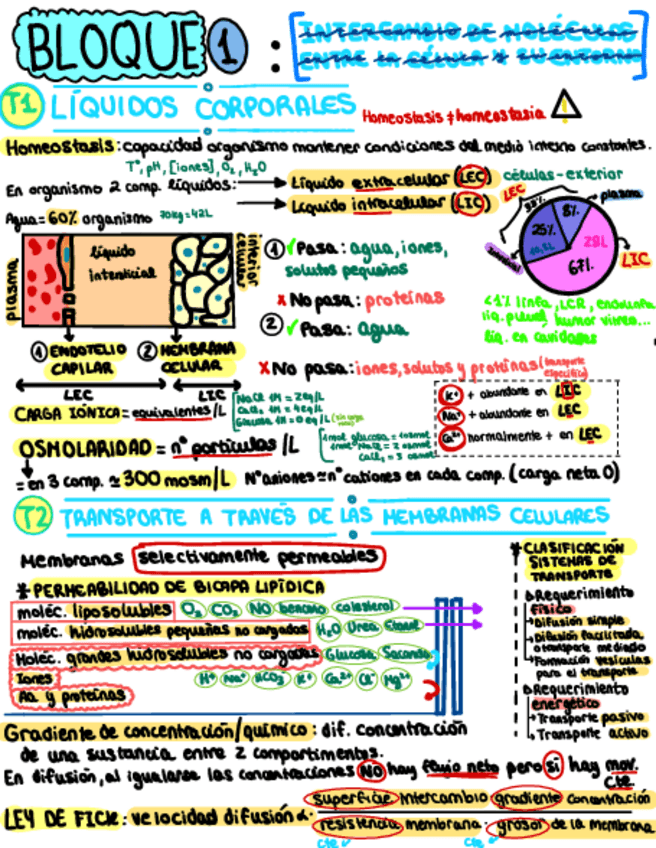 BLOQUE 1 : INTERCAMBIO DE MOLÉCULAS
ENTRE LA CÉLULA Y SU ENTORNO
T1 LÍQUIDOS CORPORALES
Homeostasis ≠ homeostasia
Homeostasis: capacidad organismo mantener condiciones del medio interno constantes.
Tª, pH, [iones], O₂, H₂O
En organismo 2 comp. líquidos:
Líquido extracelular (LEC) células-exterior
Líquido intracelular (LIC)
Agua = 60% organismo 70kg = 42L
plasma
líquido
intersticial
interior
celular
① ENDOTELIO
CAPILAR
② MEMBRANA
CELULAR
LEC
LIC
① ✓ Pasa: agua, iones,
solutos pequeños
✗ No pasa: proteínas
② ✓ Pasa: agua
✗ No pasa: iones, solutos y proteínas (transporte
específico)
LEC
33%
plasma
8%
25%
28L
67%
LIC
<1% linfa, LCR, endolinfa
liq. pleural, humor vítreo...
liq. en cavidades
CARGA IÓNICA = equivalentes/L
NaCl 1M = 2eq/L
CaCl₂ 1M = 4eq/L
Glucosa 1M = 0 eq/L (sin carga
neta)
K⁺ + abundante en LIC
Na⁺ + abundante en LEC
Ca²⁺ normalmente + en LEC
OSMOLARIDAD = nº partículas/L
1mol glucosa = 1osmol
1mol NaCl = 2 osmol
CaCl₂ = 3 osmol
= en 3 comp. ≃ 300 mosm/L
Nºaniones ≃ nº cationes en cada comp. (carga neta 0)
T2 TRANSPORTE A TRAVÉS DE LAS MEMBRANAS CELULARES
Membranas selectivamente permeables
* PERMEABILIDAD DE BICAPA LIPÍDICA
moléc. liposolubles O₂ CO₂ NO benceno colesterol
moléc. hidrosolubles pequeñas no cargadas H₂O Urea Etanol
Moléc. grandes hidrosolubles no cargadas Glucosa Sacarosa
Iones H⁺ Na⁺ HCO₃⁻ K⁺ Ca²⁺ Cl⁻ Mg²⁺
Aa. y proteínas
* CLASIFICACIÓN
SISTEMAS DE
TRANSPORTE
Requerimiento
físico
Difusión simple
Difusión facilitada
o transporte mediado
Formación vesículas
para el transporte
Requerimiento
energético
Transporte pasivo
Transporte activo
Gradiente de concentración/químico: dif. concentración
de una sustancia entre 2 compartimentos.
En difusión, al igualarse las concentraciones NO hay flujo neto pero sí hay mov.
cte.
LEY DE FICK: velocidad difusión α
superficie intercambio gradiente concentración
resistencia membrana grosor de la membrana
cte cte